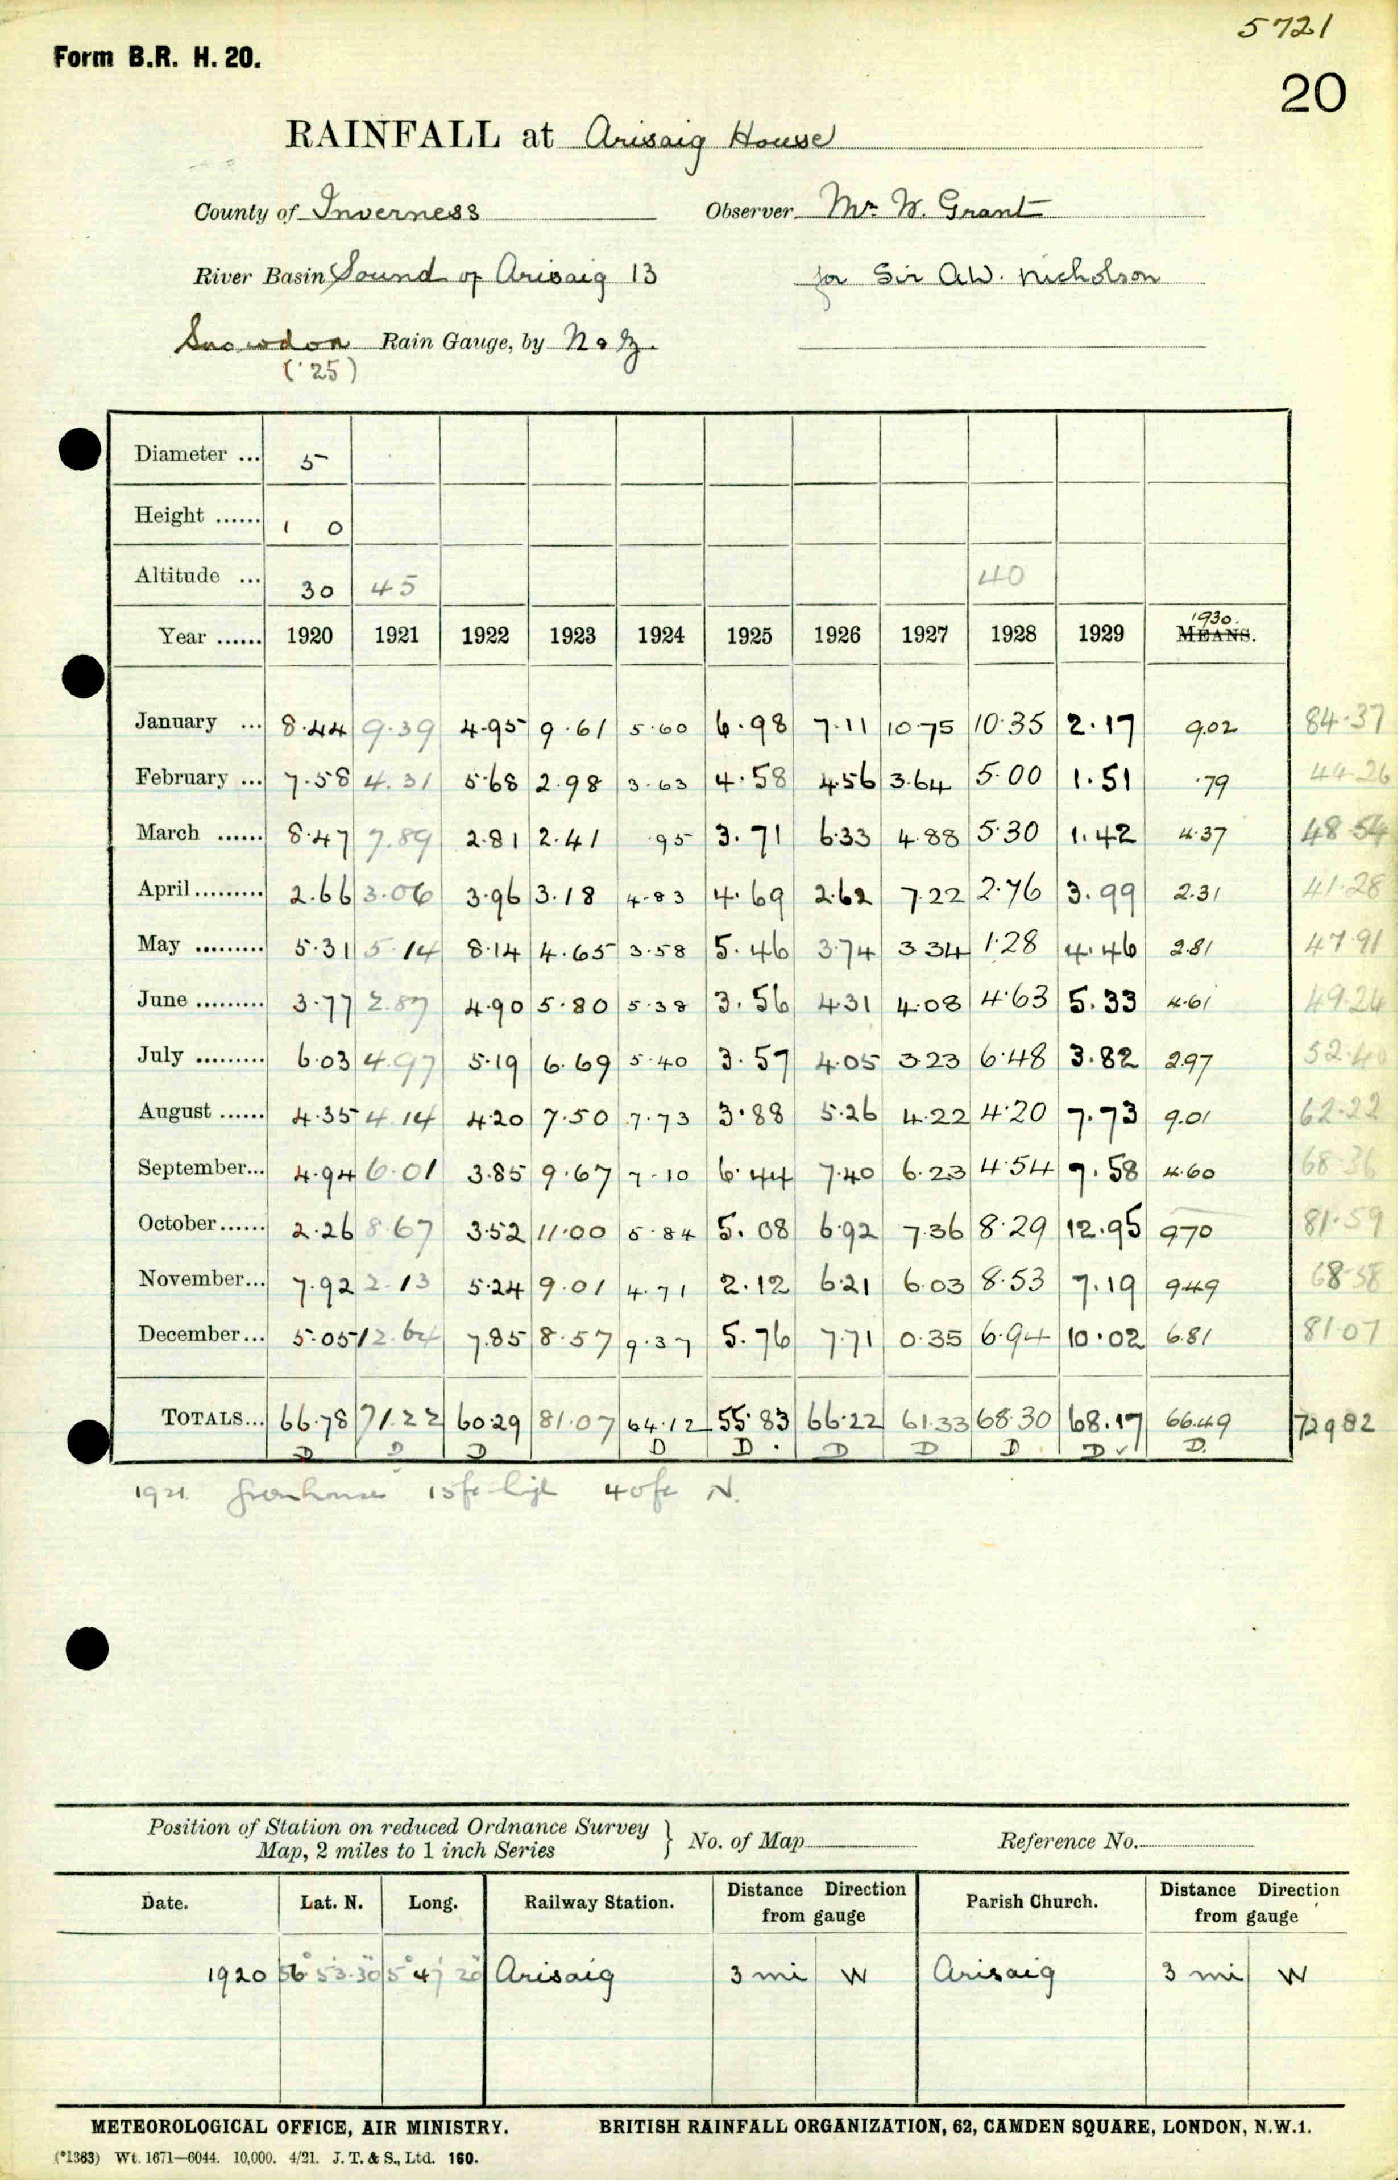 5721
Form B.R. H. 20.
20
RAINFALL at Arisaig House
County of Inverness Observer Mr. W. Grant
River Basin Sound of Arisaig 13 for Sir A.W. Nicholson
Snowdon Rain Gauge, by N & Z.
('25)
Diameter ... 5
Height ...... 1 0
Altitude ... 30 45 40
Year ...... 1920 1921 1922 1923 1924 1925 1926 1927 1928 1929 1930. MEANS.
January ... 8.44 9.39 4.95 9.61 5.60 6.98 7.11 10.75 10.35 2.17 9.02 84.37
February ... 7.58 4.31 5.68 2.98 3.63 4.58 4.56 3.64 5.00 1.51 .79 44.26
March ...... 8.47 7.89 2.81 2.41 .95 3.71 6.33 4.88 5.30 1.42 4.37 48.54
April......... 2.66 3.06 3.96 3.18 4.83 4.69 2.62 7.22 2.76 3.99 2.31 41.28
May ......... 5.31 5.14 8.14 4.65 3.58 5.46 3.74 3.34 1.28 4.46 2.81 47.91
June ......... 3.77 2.87 4.90 5.80 5.38 3.56 4.31 4.08 4.63 5.33 4.61 49.24
July ......... 6.03 4.97 5.19 6.69 5.40 3.57 4.05 3.23 6.48 3.82 2.97 52.40
August ...... 4.35 4.14 4.20 7.50 7.73 3.88 5.26 4.22 4.20 7.73 9.01 62.22
September... 4.94 6.01 3.85 9.67 7.10 6.44 7.40 6.23 4.54 7.58 4.60 68.36
October...... 2.26 8.67 3.52 11.00 5.84 5.08 6.92 7.36 8.29 12.95 9.70 81.59
November... 7.92 2.13 5.24 9.01 4.71 2.12 6.21 6.03 8.53 7.19 9.49 68.58
December... 5.05 12.64 7.85 8.57 9.37 5.76 7.71 0.35 6.94 10.02 6.81 81.07
TOTALS... 66.78 71.22 60.29 81.07 64.12 55.83 66.22 61.33 68.30 68.17 66.49 729.82
D D D D D. D D D D✓ D.
1921. Greenhouse 15ft high 40ft N.
Position of Station on reduced Ordnance Survey
Map, 2 miles to 1 inch Series } No. of Map Reference No.
Date. Lat. N. Long. Railway Station. Distance Direction from gauge Parish Church. Distance Direction from gauge
1920 56° 53' 30" 5° 47' 20" Arisaig 3 mi W Arisaig 3 mi W
METEOROLOGICAL OFFICE, AIR MINISTRY. BRITISH RAINFALL ORGANIZATION, 62, CAMDEN SQUARE, LONDON, N.W.1.
(*1383) Wt. 1671—6044. 10,000. 4/21. J. T. & S., Ltd. 160.